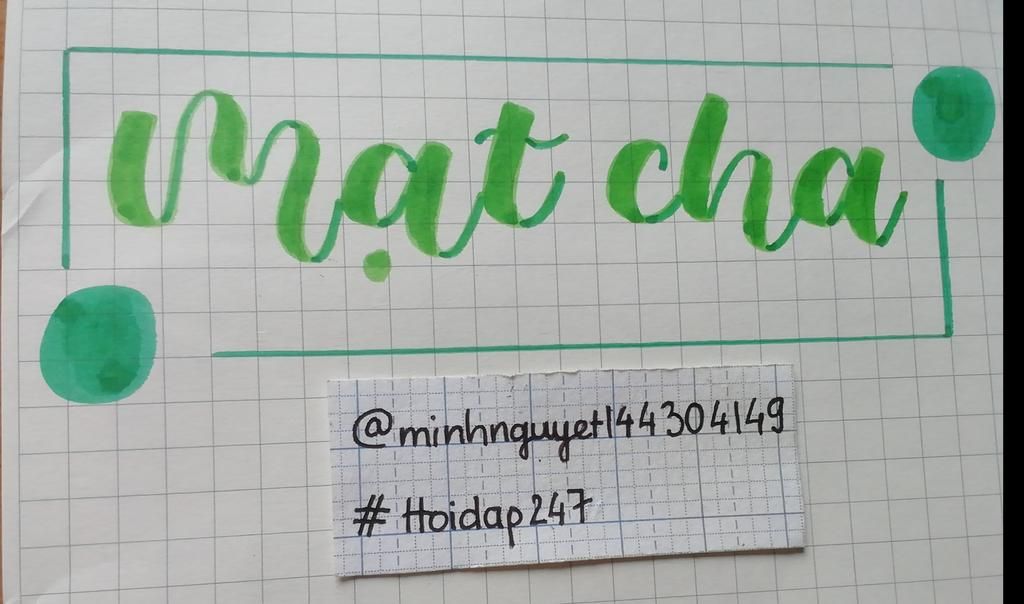 mạt cha
@minhnguyet144304149
# Hoidap247